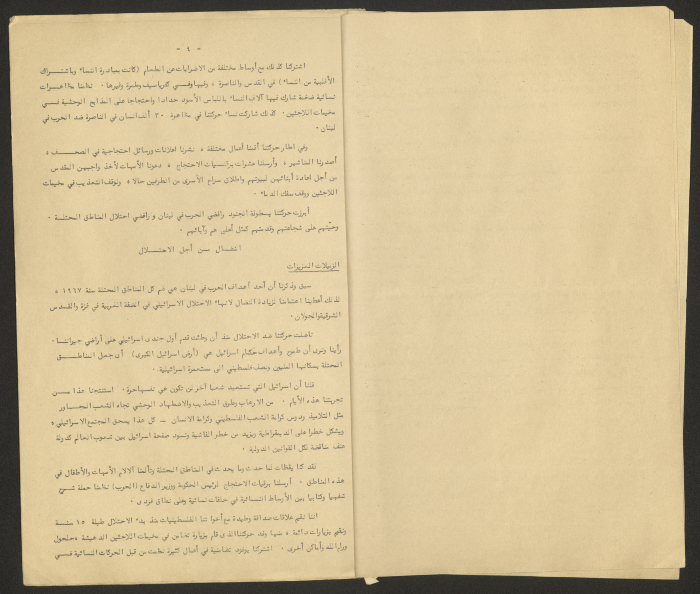 - ٤ -
اشتركنا كذلك مع أوساط مختلفة من الاضرابات عن الطعام (كانت بمبادرة النساء وباشتراك
الأغلبية من النساء) في القدس والناصرة ، وفي كفرياسيف وطمرة وغيرها . نظمنا مظاهرات
نسائية ضخمة شارك فيها آلاف النساء باللباس الأسود حدادا واحتجاجا على المذابح الوحشية في
مخيمات اللاجئين . كذلك شاركت نساء حركتنا في مظاهرة ٣٠ ألف انسان في الناصرة ضد الحرب في
لبنان .
وفي اطار حركتنا أقمنا أعمال مختلفة ، نشرنا اعلانات ورسائل احتجاجية في الصحف ،
أصدرنا المناشير ، وأرسلنا عشرات برقيات الاحتجاج ، دعونا الأمهات لأخذ واجبهن المقدس
من أجل اعادة أبنائهن لبيوتهم واطلاق سراح الأسرى من الطرفين حالا ، ووقف التعذيب في مخيمات
اللاجئين ووقف سفك الدماء .
أبرزت حركتنا بسطولة الجنود رافضي الحرب في لبنان ورافضي احتلال المناطق المحتلة .
وحيتهم على شجاعتهم وقدمتهم كمثل أعلى هم وآبائهم .
النضال من أجل الاحتلال
الزميلات العزيزات
سبق وذكرنا أن أحد أهداف الحرب في لبنان هي ضم كل المناطق المحتلة سنة ١٩٦٧ ،
لذلك أعطينا اهتمامنا لزيادة النضال لانهاء الاحتلال الاسرائيلي في الضفة الغربية في غزة والقدس
الشرقية والجولان .
ناضلت حركتنا ضد الاحتلال منذ أن وطئت قدم أول جندي اسرائيلي على أراضي جيراننا .
رأينا ونرى أن طموح وأهداف حكام اسرائيل هي (أرض اسرائيل الكبرى) أن تجعل المناطق
المحتلة بسكانها المليون ونصف فلسطيني الى مستعمرة اسرائيلية .
قلنا أن اسرائيل التي تستعبد شعبا آخر لن تكون هي نفسها حرة . استنتجنا هذا من
تجربتنا هذه الأيام . من الارهاب وطرق التعذيب والاضطهاد الوحشي تجاه الشعب المجاور
مثل التلاميذ ودوس كرامة الشعب الفلسطيني وكرامة الانسان - كل هذا يسحق المجتمع الاسرائيلي ،
ويشكل خطرا على الديمقراطية ويزيد من خطر الفاشية وتسود صفحة اسرائيل بين شعوب العالم كدولة
عنف مناقضة لكل القوانين الدولية .
لقد كنا يقظات لما حدث وما يحدث في المناطق المحتلة وتألمنا لآلام الأمهات والأطفال في
هذه المناطق . أرسلنا برقيات الاحتجاج لرئيس الحكومة ووزير الدفاع (الحرب) نظمنا حملة شرح
شفهيا وكتابيا بين الأوساط النسائية في حلقات نسائية وعلى نطاق فردي .
اننا نقيم علاقات صداقة وطيدة مع أخواتنا الفلسطينيات منذ بدء الاحتلال طيلة ١٥ سنة
ونقيم بزيارات دائمة ، منها وفد حركتنا الذي قام بزيارة تضامن في مخيمات اللاجئين الدهيشة ، حلحول
ورام الله وأماكن أخرى . اشتركنا بوفود تضامنية في أعمال كثيرة نظمت من قبل الحركات النسائية في